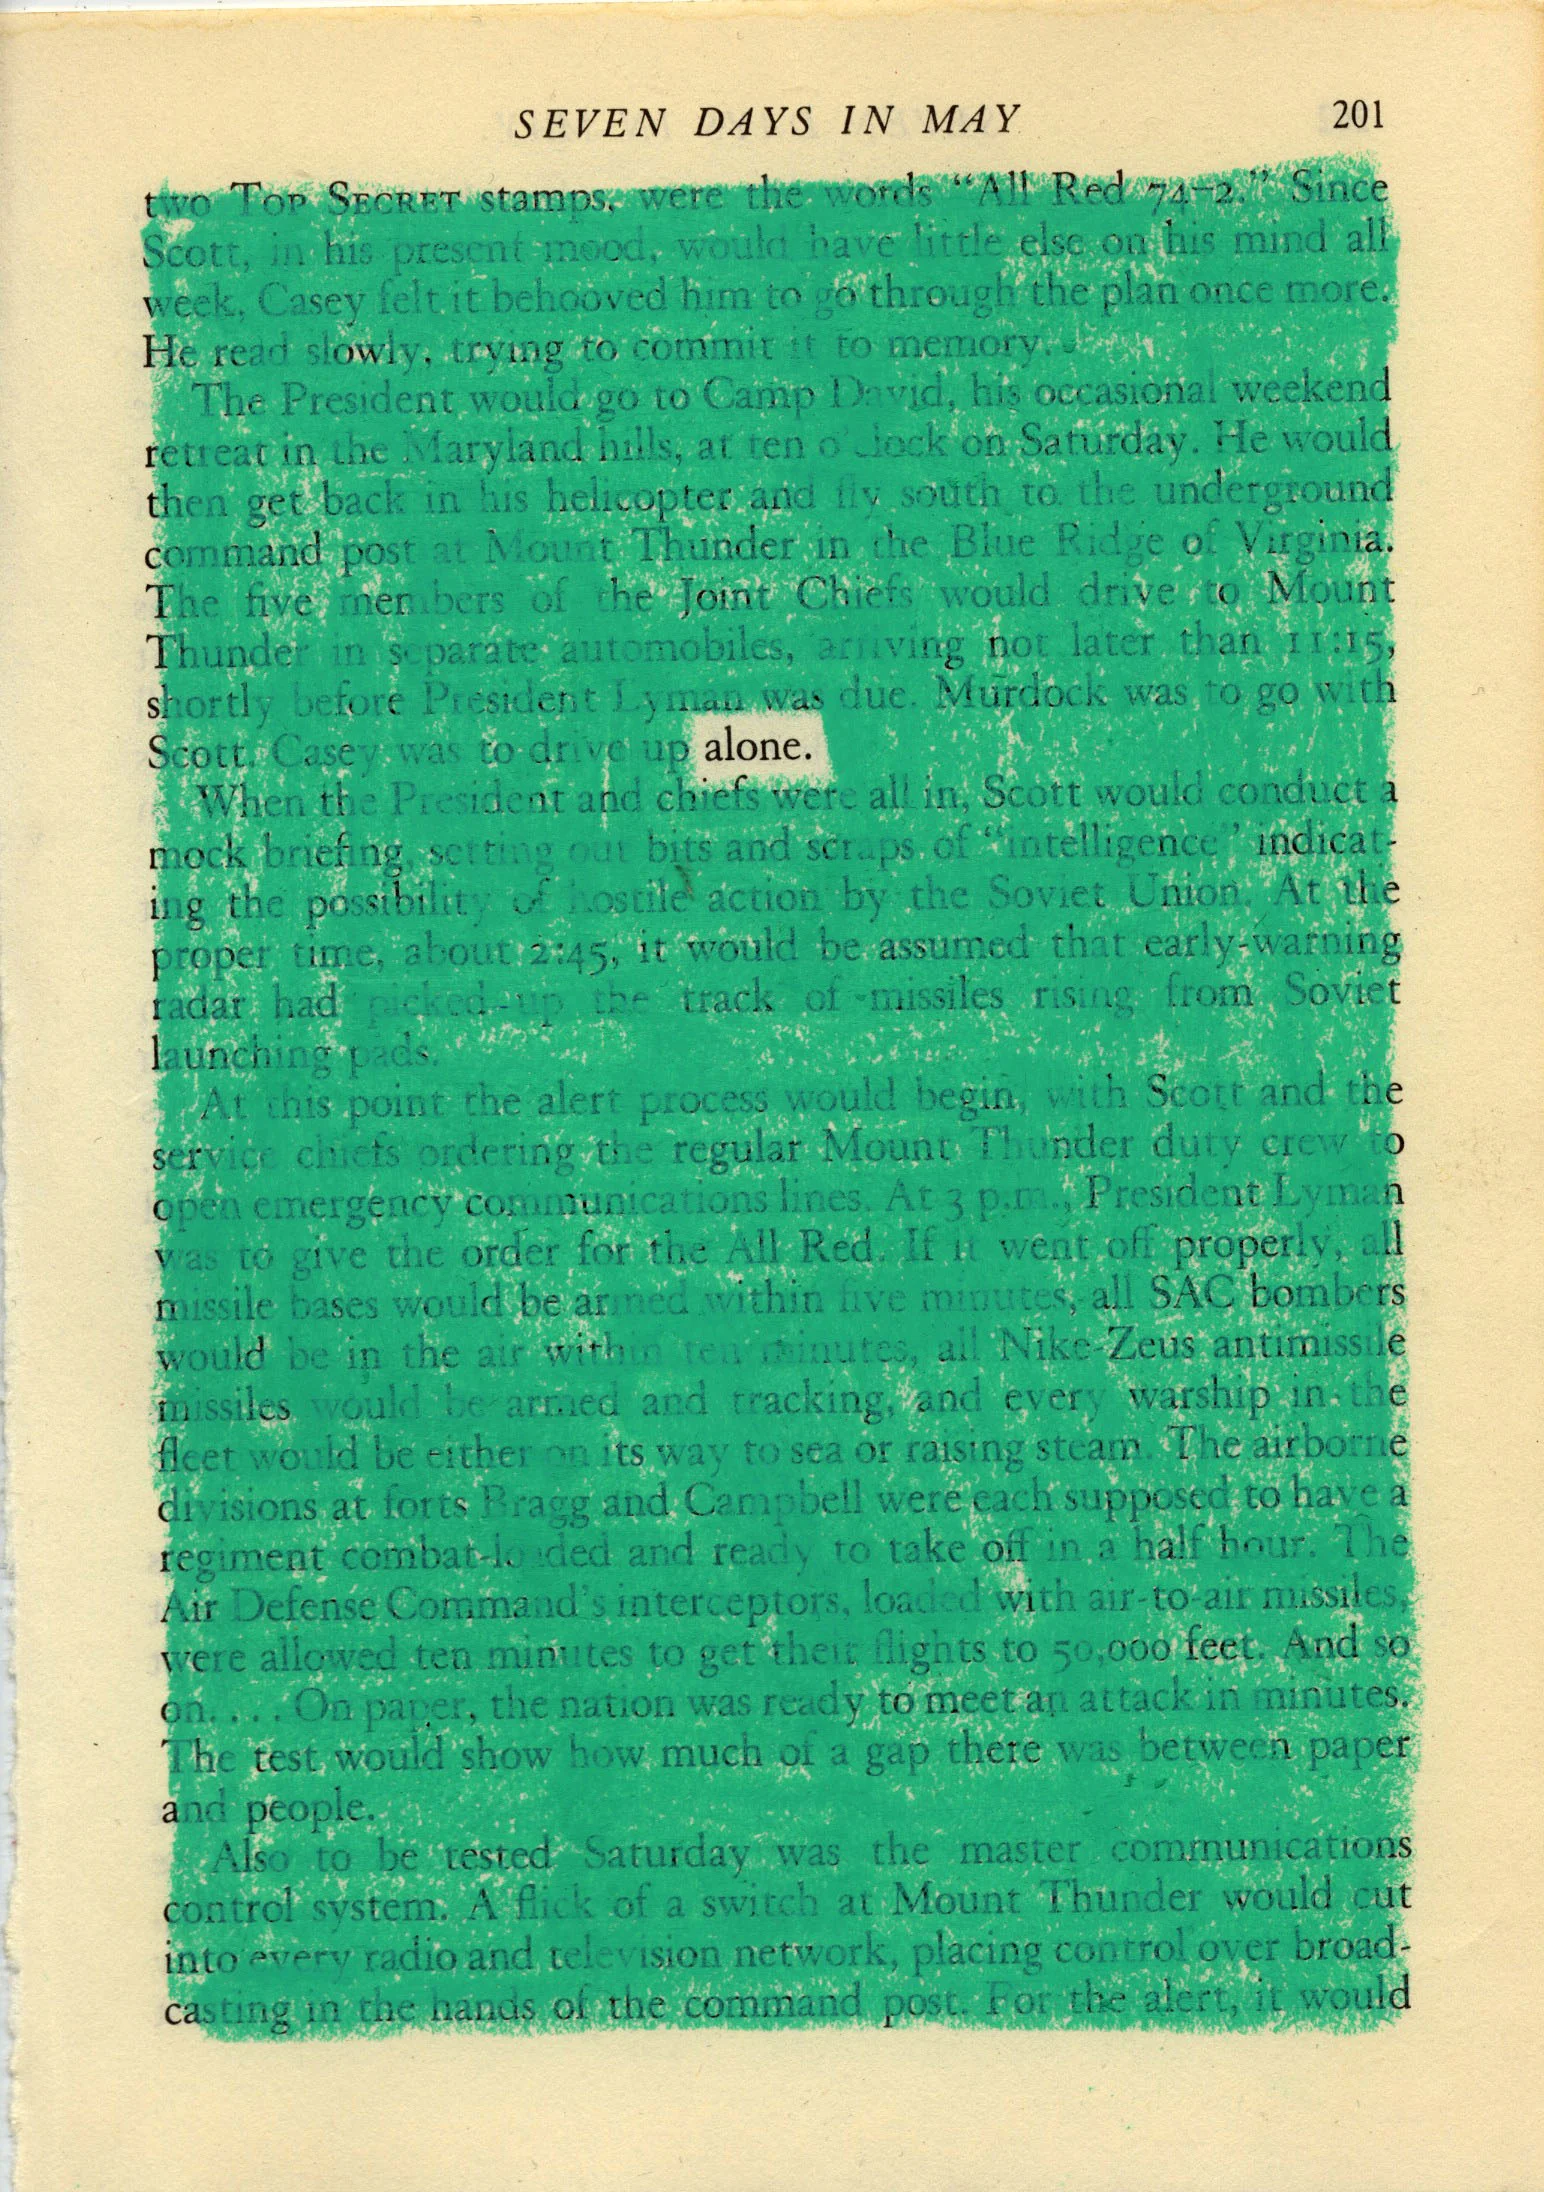 SEVEN DAYS IN MAY 201
two TOP SECRET stamps, were the words “All Red 74–2.” Since
Scott, in his present mood, would have little else on his mind all
week, Casey felt it behooved him to go through the plan once more.
He read slowly, trying to commit it to memory.
The President would go to Camp David, his occasional weekend
retreat in the Maryland hills, at ten o'clock on Saturday. He would
then get back in his helicopter and fly south to the underground
command post at Mount Thunder in the Blue Ridge of Virginia.
The five members of the Joint Chiefs would drive to Mount
Thunder in separate automobiles, arriving not later than 11:15,
shortly before President Lyman was due. Murdock was to go with
Scott. Casey was to drive up alone.
When the President and chiefs were all in, Scott would conduct a
mock briefing, setting out bits and scraps of “intelligence” indicat-
ing the possibility of hostile action by the Soviet Union. At the
proper time, about 2:45, it would be assumed that early-warning
radar had picked up the track of missiles rising from Soviet
launching pads.
At this point the alert process would begin, with Scott and the
service chiefs ordering the regular Mount Thunder duty crew to
open emergency communications lines. At 3 p.m., President Lyman
was to give the order for the All Red. If it went off properly, all
missile bases would be armed within five minutes, all SAC bombers
would be in the air within ten minutes, all Nike-Zeus antimissile
missiles would be armed and tracking, and every warship in the
fleet would be either on its way to sea or raising steam. The airborne
divisions at forts Bragg and Campbell were each supposed to have a
regiment combat-loaded and ready to take off in a half hour. The
Air Defense Command's interceptors, loaded with air-to-air missiles,
were allowed ten minutes to get their flights to 50,000 feet. And so
on. . . . On paper, the nation was ready to meet an attack in minutes.
The test would show how much of a gap there was between paper
and people.
Also to be tested Saturday was the master communications
control system. A flick of a switch at Mount Thunder would cut
into every radio and television network, placing control over broad-
casting in the hands of the command post. For the alert, it would